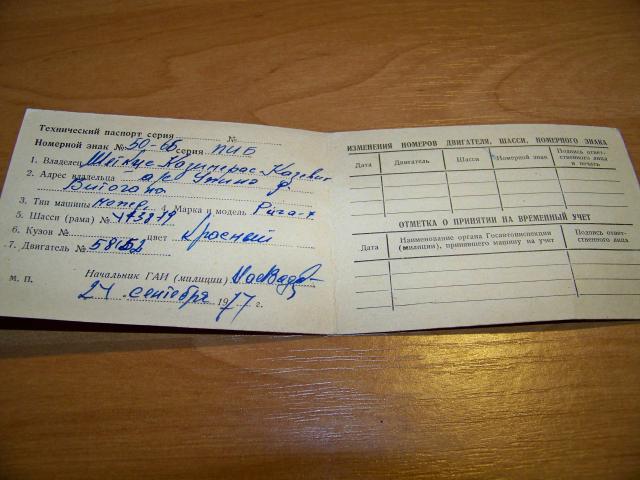 Технический паспорт серия № 
Номерной знак № 50-66 серия ПИБ
1. Владелец Шеткус Казимерас Казевич
2. Адрес владельца а/к Утино ф.
Витогана
3. Тип машины мотц. 4. Марка и модель Рига-4
5. Шасси (рама) № 473879
6. Кузов № цвет красный
7. Двигатель № 58652
м. П. Начальник ГАИ (милиции)
24 сентября 1977 г.
ИЗМЕНЕНИЯ НОМЕРОВ ДВИГАТЕЛЯ, ШАССИ, НОМЕРНОГО ЗНАКА
Дата Двигатель Шасси Номерной знак Подпись ответ-
ственного лица
и печать
ОТМЕТКА О ПРИНЯТИИ НА ВРЕМЕННЫЙ УЧЕТ
Дата Наименование органа Госавтоинспекции
(милиции), принявшего машину на учет
Подпись ответ-
ственного лица